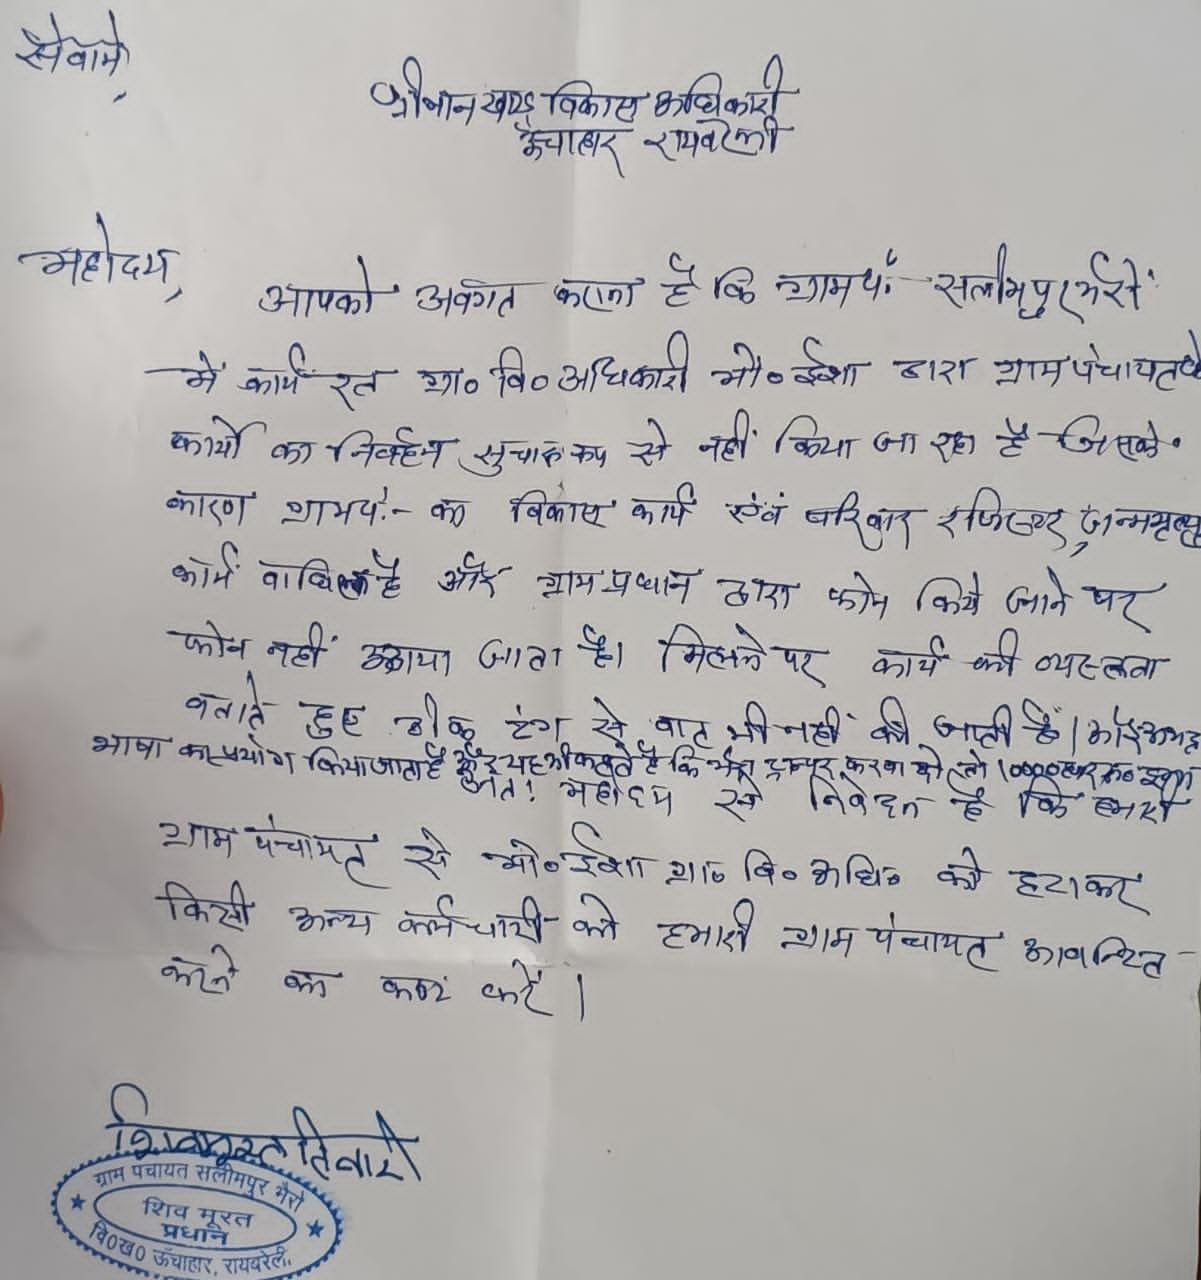 सेवामे,
श्रीमान खण्ड विकास अधिकारी
ऊँचाहार रायबरेली
महोदय,
आपको अवगत कराना है कि ग्राम पं०- सलीमपुर भैरों
में कार्य रत ग्रा० वि० अधिकारी मो० ईशा द्वारा ग्राम पंचायत के
कार्यो का निर्वहन सुचारू रूप से नहीं किया जा रहा है जिसके
कारण ग्राम पं०- का विकास कार्य एवं परिवार रजिस्टर, जन्म मृत्यु
कार्य बाधित है और ग्राम प्रधान द्वारा फोन किये जाने पर
फोन नहीं उठाया जाता है। मिलने पर कार्य की व्यस्तता
बताते हुए ठीक ढंग से बात भी नहीं की जाती है। और अभद्र
भाषा का प्रयोग किया जाता है और यह भी कहते है कि मेरा ट्रान्सफर करवा दो तो 10000 हजार रू०
अतः महोदय से निवेदन है कि हमारी
ग्राम पंचायत से मो० ईशा ग्रा० वि० अधि० को हटाकर
किसी अन्य कर्मचारी को हमारी ग्राम पंचायत आवन्टित
करने का कष्ट करें।
शिवमूरत तिवारी
ग्राम पंचायत सलीमपुर भैरो
शिव मूरत
प्रधान
वि०ख० ऊँचाहार, रायबरेली.